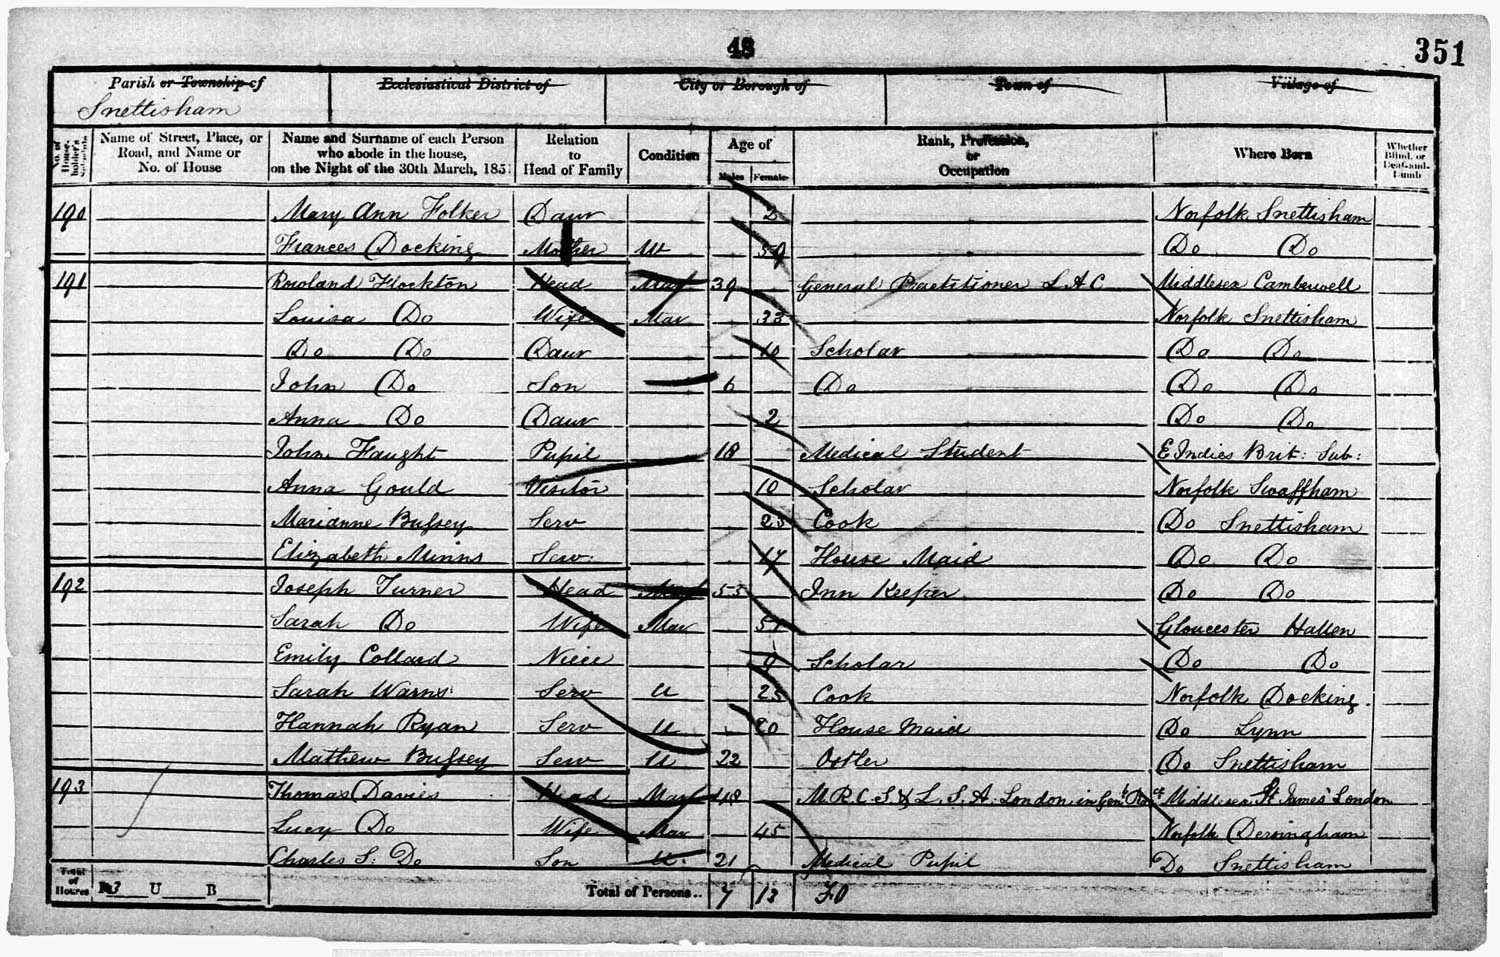 48
351
Parish or Township of Ecclesiastical District of City or Borough of Town of Village of
Snettisham
No. of House-holder's Schedule Name of Street, Place, or Road, and Name or No. of House Name and Surname of each Person who abode in the house, on the Night of the 30th March, 1851 Relation to Head of Family Condition Age of Males Females Rank, Profession, or Occupation Where Born Whether Blind, or Deaf-and-Dumb
190 Mary Ann Folker Daur 2 Norfolk Snettisham
Frances Docking Mother 59 Do Do
191 Rowland Flockton Head Mar 39 General Practitioner L A C Middlesex Camberwell
Louisa Do Wife Mar 33 Norfolk Snettisham
Do Do Daur 10 Scholar Do Do
John Do Son 6 Do Do Do
Anna Do Daur 2 Do Do
John Faught Pupil 18 Medical Student E Indies Brit: Sub:
Anna Gould Visitor 10 Scholar Norfolk Swaffham
Marianne Bussey Serv 23 Cook Do Snettisham
Elizabeth Minns Serv: 17 House Maid Do Do
192 Joseph Turner Head Mar 53 Inn Keeper Do Do
Sarah Do Wife Mar 51 Gloucester Hallen
Emily Collard Niece 9 Scholar Do Do
Sarah Warns Serv U 25 Cook Norfolk Docking
Hannah Ryan Serv U 20 House Maid Do Lynn
Mathew Bussey Serv U 22 Ostler Do Snettisham
193 Thomas Davies Head Mar 48 M.R.C.S. & L.S.A. London in Genl Pract Middlesex St James' London
Lucy Do Wife Mar 45 Norfolk Dersingham
Charles S. Do Son U. 21 Medical Pupil Do Snettisham
Total of Houses I 3 U B Total of Persons.. 7 13